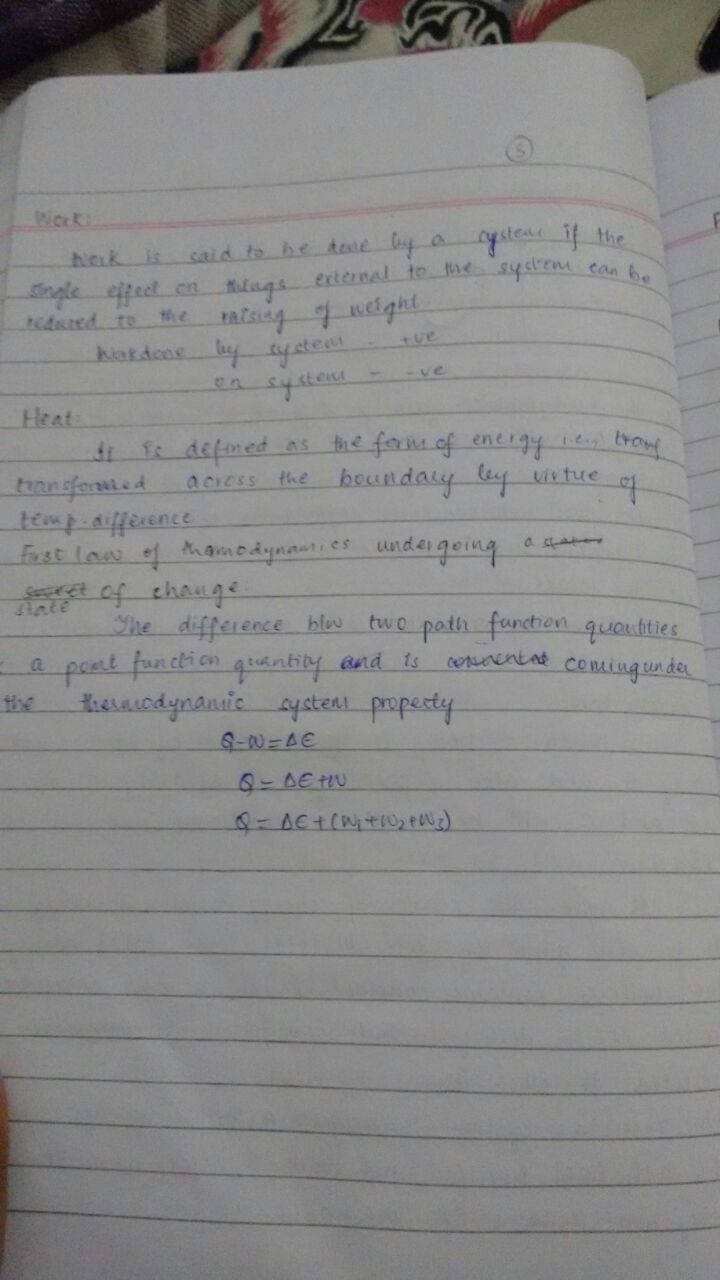 5
Work:
Work is said to be done by a system if the
single effect on things external to the system can be
reduced to the raising of weight.
Workdone by system - +ve
on system - -ve
Heat:
It is defined as the form of energy i.e., transf
transformed across the boundary by virtue of
temp. difference
First law of thomodynamics undergoing a
state of change.
The difference b/w two path function quantities
a point function quantity and is comingunder
the thermodynamic system property
Q-W=ΔE
Q = ΔE+W
Q = ΔE+(W1+W2+W3)